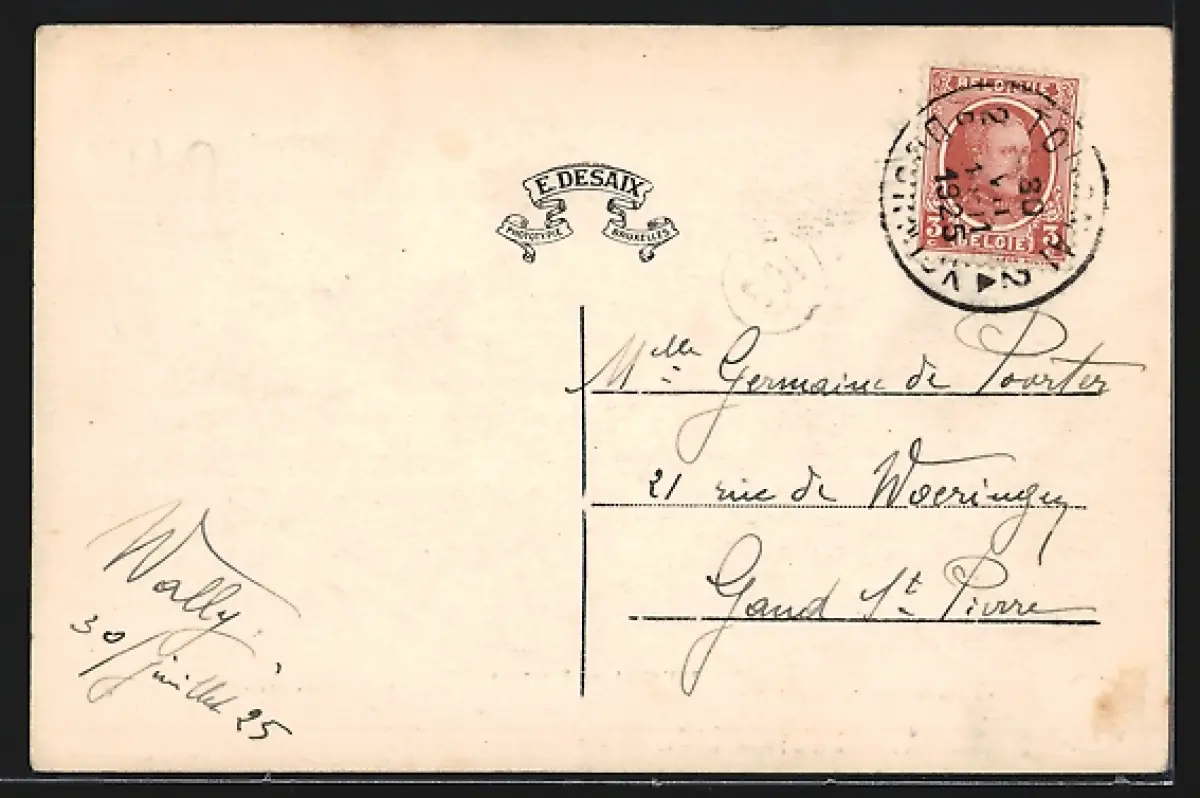 E. DESAIX
PHOTOTYPIE BRUXELLES
BELGIQUE
3c (BELGIË) 3c
TOURNAI 2
DOORNIK
30
VII
1925
Mlle Germaine de Poorter
21 rue de Woeringen
Gand St. Pierre
Wally.
30/juillet 25